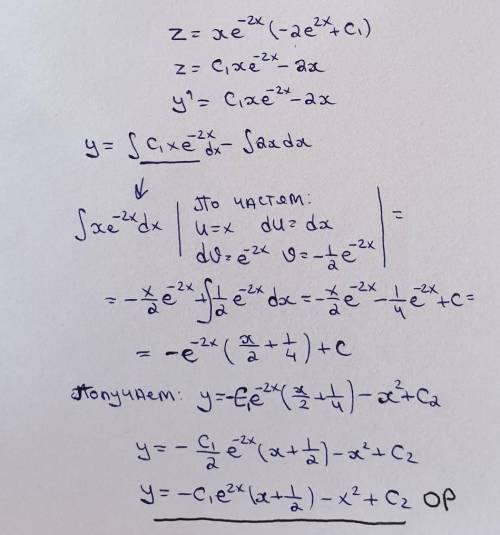 z = xe^{-2x} (-2e^{2x} + C₁)
z = C₁xe^{-2x} - 2x
y' = C₁xe^{-2x} - 2x
y = ∫ C₁xe^{-2x} dx - ∫ 2x dx
∫ xe^{-2x} dx | По частям: u = x du = dx dv = e^{-2x} v = -1/2 e^{-2x} | =
= -x/2 e^{-2x} + ∫ 1/2 e^{-2x} dx = -x/2 e^{-2x} - 1/4 e^{-2x} + C =
= -e^{-2x} (x/2 + 1/4) + C
Получаем: y = -C₁e^{-2x} (x/2 + 1/4) - x² + C₂
y = - C₁/2 e^{-2x} (x + 1/2) - x² + C₂
y = -C₁e^{2x} (x + 1/2) - x² + C₂ ОР